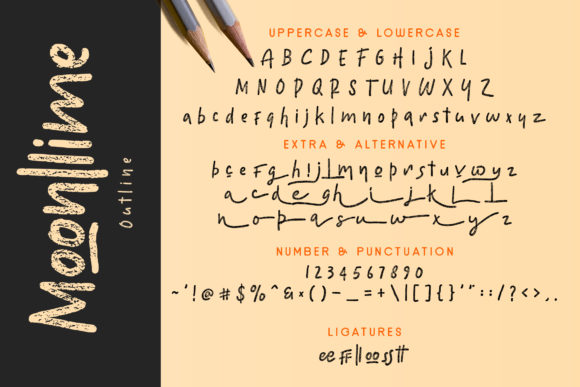 Outline
UPPERCASE & LOWERCASE
A B C D E F G H I J K L
M N O P Q R S T U V W X Y Z
a b c d e f g h i j k l m n o p q r s t u v w x y z
EXTRA & ALTERNATIVE
b c e f g h i j l m n o p q r s t u v w y z
a c d e g h i j k l l
n o p a s u w x y z
NUMBER & PUNCTUATION
1 2 3 4 5 6 7 8 9 0
~ ' ! @ # $ % ^ & * ( ) - _ = + \ | [ ] { } ' " : ; / ? < > , .
LIGATURES
ee ff ll oo ss tt